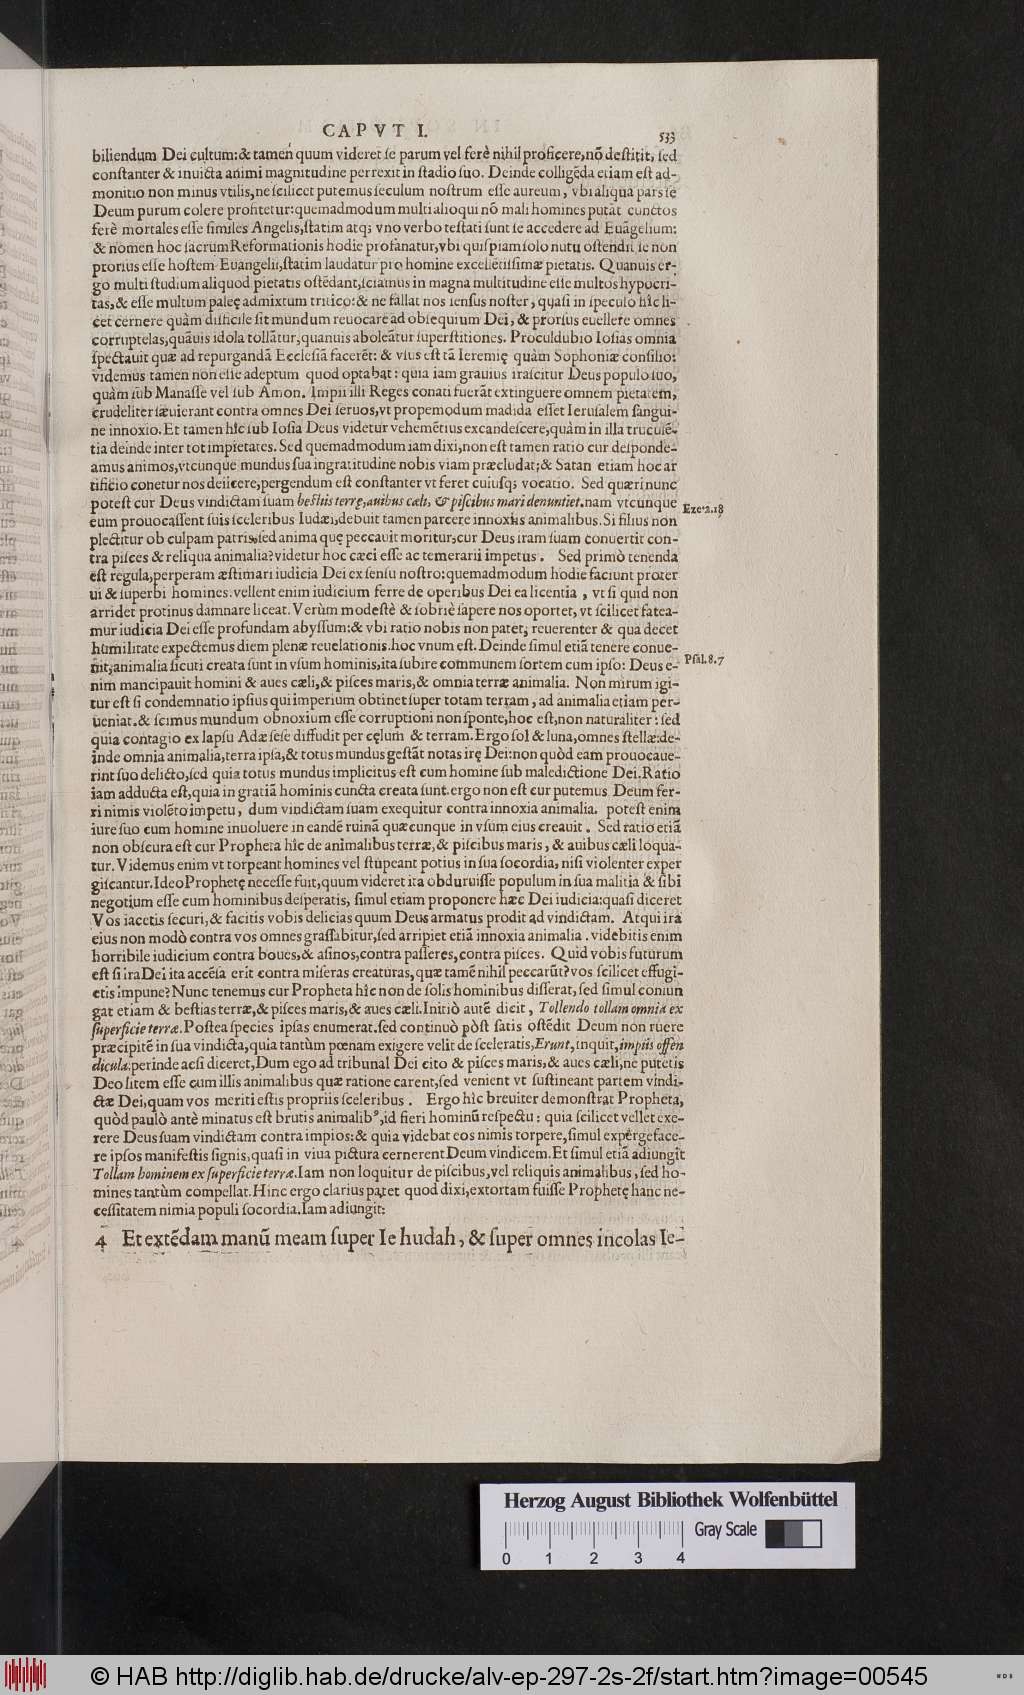 CAPVT I. 533
biliendum Dei cultum: & tamen quum videret se parum vel ferè nihil proficere, nõ destitit, sed
constanter & inuicta animi magnitudine perrexit in stadio suo. Deinde colligẽda etiam est ad-
monitio non minus vtilis, ne scilicet putemus seculum nostrum esse aureum, vbi aliqua pars se
Deum purum colere profitetur: quemadmodum multi alioqui nõ mali homines putãt cunctos
ferè mortales esse similes Angelis, statim atq; vno verbo testati sunt se accedere ad Euãgelium:
& nomen hoc sacrum Reformationis hodie profanatur, vbi quispiam solo nutu ostendit se non
prorsus esse hostem Euangelii, statim laudatur pro homine excellẽtissimæ pietatis. Quanuis er-
go multi studium aliquod pietatis ostẽdant, sciamus in magna multitudine esse multos hypocri-
tas, & esse multum paleę admixtum tritico: & ne fallat nos sensus noster, quasi in speculo hîc li-
cet cernere quàm difficile sit mundum reuocare ad obsequium Dei, & prorsus euellere omnes
corruptelas, quãuis idola tollãtur, quanuis aboleãtur superstitiones. Proculdubio Iosias omnia
spectauit quæ ad repurgandã Ecclesiã facerẽt: & vsus est tã Ieremię quàm Sophoniæ consilio:
videmus tamen non esse adeptum quod optabat: quia iam grauius irascitur Deus populo suo,
quàm sub Manasse vel sub Amon. Impii illi Reges conati fuerãt extinguere omnem pietatem,
crudeliter sæuierant contra omnes Dei seruos, vt propemodum madida esset Ierusalem sangui-
ne innoxio. Et tamen hîc sub Iosia Deus videtur vehemẽtius excandescere, quàm in illa truculẽ-
tia deinde inter tot impietates. Sed quemadmodum iam dixi, non est tamen ratio cur desponde-
amus animos, vtcunque mundus sua ingratitudine nobis viam præcludat; & Satan etiam hoc ar
tificio conetur nos deiicere, pergendum est constanter vt feret cuiusq; vocatio. Sed quæri nunc
potest cur Deus vindictam suam bestiis terrę, auibus cæli, & piscibus mari denuntiet. nam vtcunque
Eze. 2. 18
eum prouocassent suis sceleribus Iudæi, debuit tamen parcere innoxiis animalibus. Si filius non
plectitur ob culpam patris, sed anima quę peccauit moritur, cur Deus iram suam conuertit con-
tra pisces & reliqua animalia? videtur hoc cæci esse ac temerarii impetus. Sed primò tenenda
est regula, perperam æstimari iudicia Dei ex sensu nostro: quemadmodum hodie faciunt proter
ui & superbi homines. vellent enim iudicium ferre de operibus Dei ea licentia, vt si quid non
arridet protinus damnare liceat. Verùm modestè & sobriè sapere nos oportet, vt scilicet fatea-
mur iudicia Dei esse profundam abyssum: & vbi ratio nobis non patet, reuerenter & qua decet
humilitate expectemus diem plenæ reuelationis. hoc vnum est. Deinde simul etiã tenere conue-
nit, animalia sicuti creata sunt in vsum hominis, ita subire communem sortem cum ipso: Deus e-
Psal. 8. 7
nim mancipauit homini & aues cæli, & pisces maris, & omnia terræ animalia. Non mirum igi-
tur est si condemnatio ipsius qui imperium obtinet super totam terram, ad animalia etiam per-
ueniat. & scimus mundum obnoxium esse corruptioni non sponte, hoc est, non naturaliter: sed
quia contagio ex lapsu Adæ sese diffudit per cęlum & terram. Ergo sol & luna, omnes stellæ: de-
inde omnia animalia, terra ipsa, & totus mundus gestãt notas irę Dei: non quòd eam prouocaue-
rint suo delicto, sed quia totus mundus implicitus est cum homine sub maledictione Dei. Ratio
iam adducta est, quia in gratiã hominis cuncta creata sunt. ergo non est cur putemus Deum fer-
ri nimis violẽto impetu, dum vindictam suam exequitur contra innoxia animalia. potest enim
iure suo cum homine inuoluere in eandẽ ruinã quæcunque in vsum eius creauit. Sed ratio etiã
non obscura est cur Propheta hîc de animalibus terræ, & piscibus maris, & auibus cæli loqua-
tur. Videmus enim vt torpeant homines vel stupeant potius in sua socordia, nisi violenter exper
giscantur. Ideo Prophetę necesse fuit, quum videret ita obduruisse populum in sua malitia & sibi
negotium esse cum hominibus desperatis, simul etiam proponere hæc Dei iudicia: quasi diceret
Vos iacetis securi, & facitis vobis delicias quum Deus armatus prodit ad vindictam. Atqui ira
eius non modò contra vos omnes grassabitur, sed arripiet etiã innoxia animalia. videbitis enim
horribile iudicium contra boues, & asinos, contra passeres, contra pisces. Quid vobis futurum
est si ira Dei ita accẽsa erit contra miseras creaturas, quæ tamẽ nihil peccarũt? vos scilicet effugi-
etis impune? Nunc tenemus cur Propheta hîc non de solis hominibus disserat, sed simul coniun
gat etiam & bestias terræ, & pisces maris, & aues cæli. Initiò autẽ dicit, Tollendo tollam omnia ex
superficie terræ. Postea species ipsas enumerat. sed continuò pòst satis ostẽdit Deum non ruere
præcipitẽ in sua vindicta, quia tantùm pœnam exigere velit de sceleratis, Erunt, inquit, impiis offen
dicula: perinde acsi diceret, Dum ego ad tribunal Dei cito & pisces maris, & aues cæli, ne putetis
Deo litem esse cum illis animalibus quæ ratione carent, sed venient vt sustineant partem vindi-
ctæ Dei, quam vos meriti estis propriis sceleribus. Ergo hîc breuiter demonstrat Propheta,
quòd paulò antè minatus est brutis animalibꝰ, id fieri hominũ respectu: quia scilicet vellet exe-
rere Deus suam vindictam contra impios: & quia videbat eos nimis torpere, simul expergeface-
re ipsos manifestis signis, quasi in viua pictura cernerent Deum vindicem. Et simul etiã adiungit
Tollam hominem ex superficie terræ. Iam non loquitur de piscibus, vel reliquis animalibus, sed ho-
mines tantùm compellat. Hinc ergo clarius patet quod dixi, extortam fuisse Prophetę hanc ne-
cessitatem nimia populi socordia. Iam adiungit:
4 Et extẽdam manũ meam super Iehudah, & super omnes incolas Ie-
Herzog August Bibliothek Wolfenbüttel
Gray Scale
0 1 2 3 4
© HAB http://diglib.hab.de/drucke/alv-ep-297-2s-2f/start.htm?image=00545